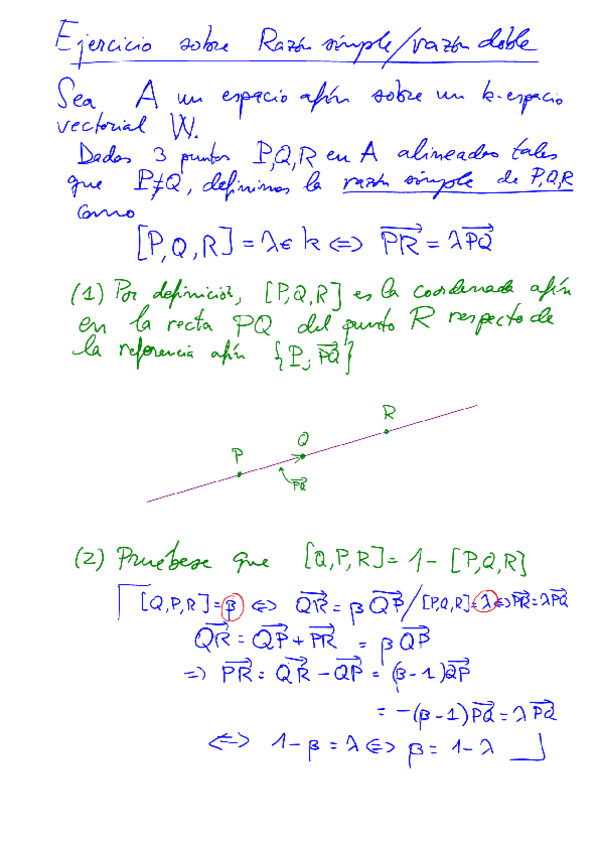 Ejercicio sobre Razón simple/razón doble
Sea A un espacio afín sobre un k-espacio
vectorial W.
Dados 3 puntos P,Q,R en A alineados tales
que P≠Q, definimos la razón simple de P,Q,R
como
[P,Q,R] = λ ∈ k ⟺ \overrightarrow{PR} = λ\overrightarrow{PQ}
(1) Por definición, [P,Q,R] es la coordenada afín
en la recta PQ del punto R respecto de
la referencia afín {P; \overrightarrow{PQ}}
R
Q
P
\overrightarrow{PQ}
(2) Pruébese que [Q,P,R] = 1 - [P,Q,R]
[Q,P,R] = β ⟺ \overrightarrow{QR} = β\overrightarrow{QP} / [P,Q,R] = λ ⟺ \overrightarrow{PR} = λ\overrightarrow{PQ}
\overrightarrow{QR} = \overrightarrow{QP} + \overrightarrow{PR} = β\overrightarrow{QP}
⇒ \overrightarrow{PR} = \overrightarrow{QR} - \overrightarrow{QP} = (β-1)\overrightarrow{QP}
= -(β-1)\overrightarrow{PQ} = λ\overrightarrow{PQ}
⟺ 1-β = λ ⟺ β = 1-λ